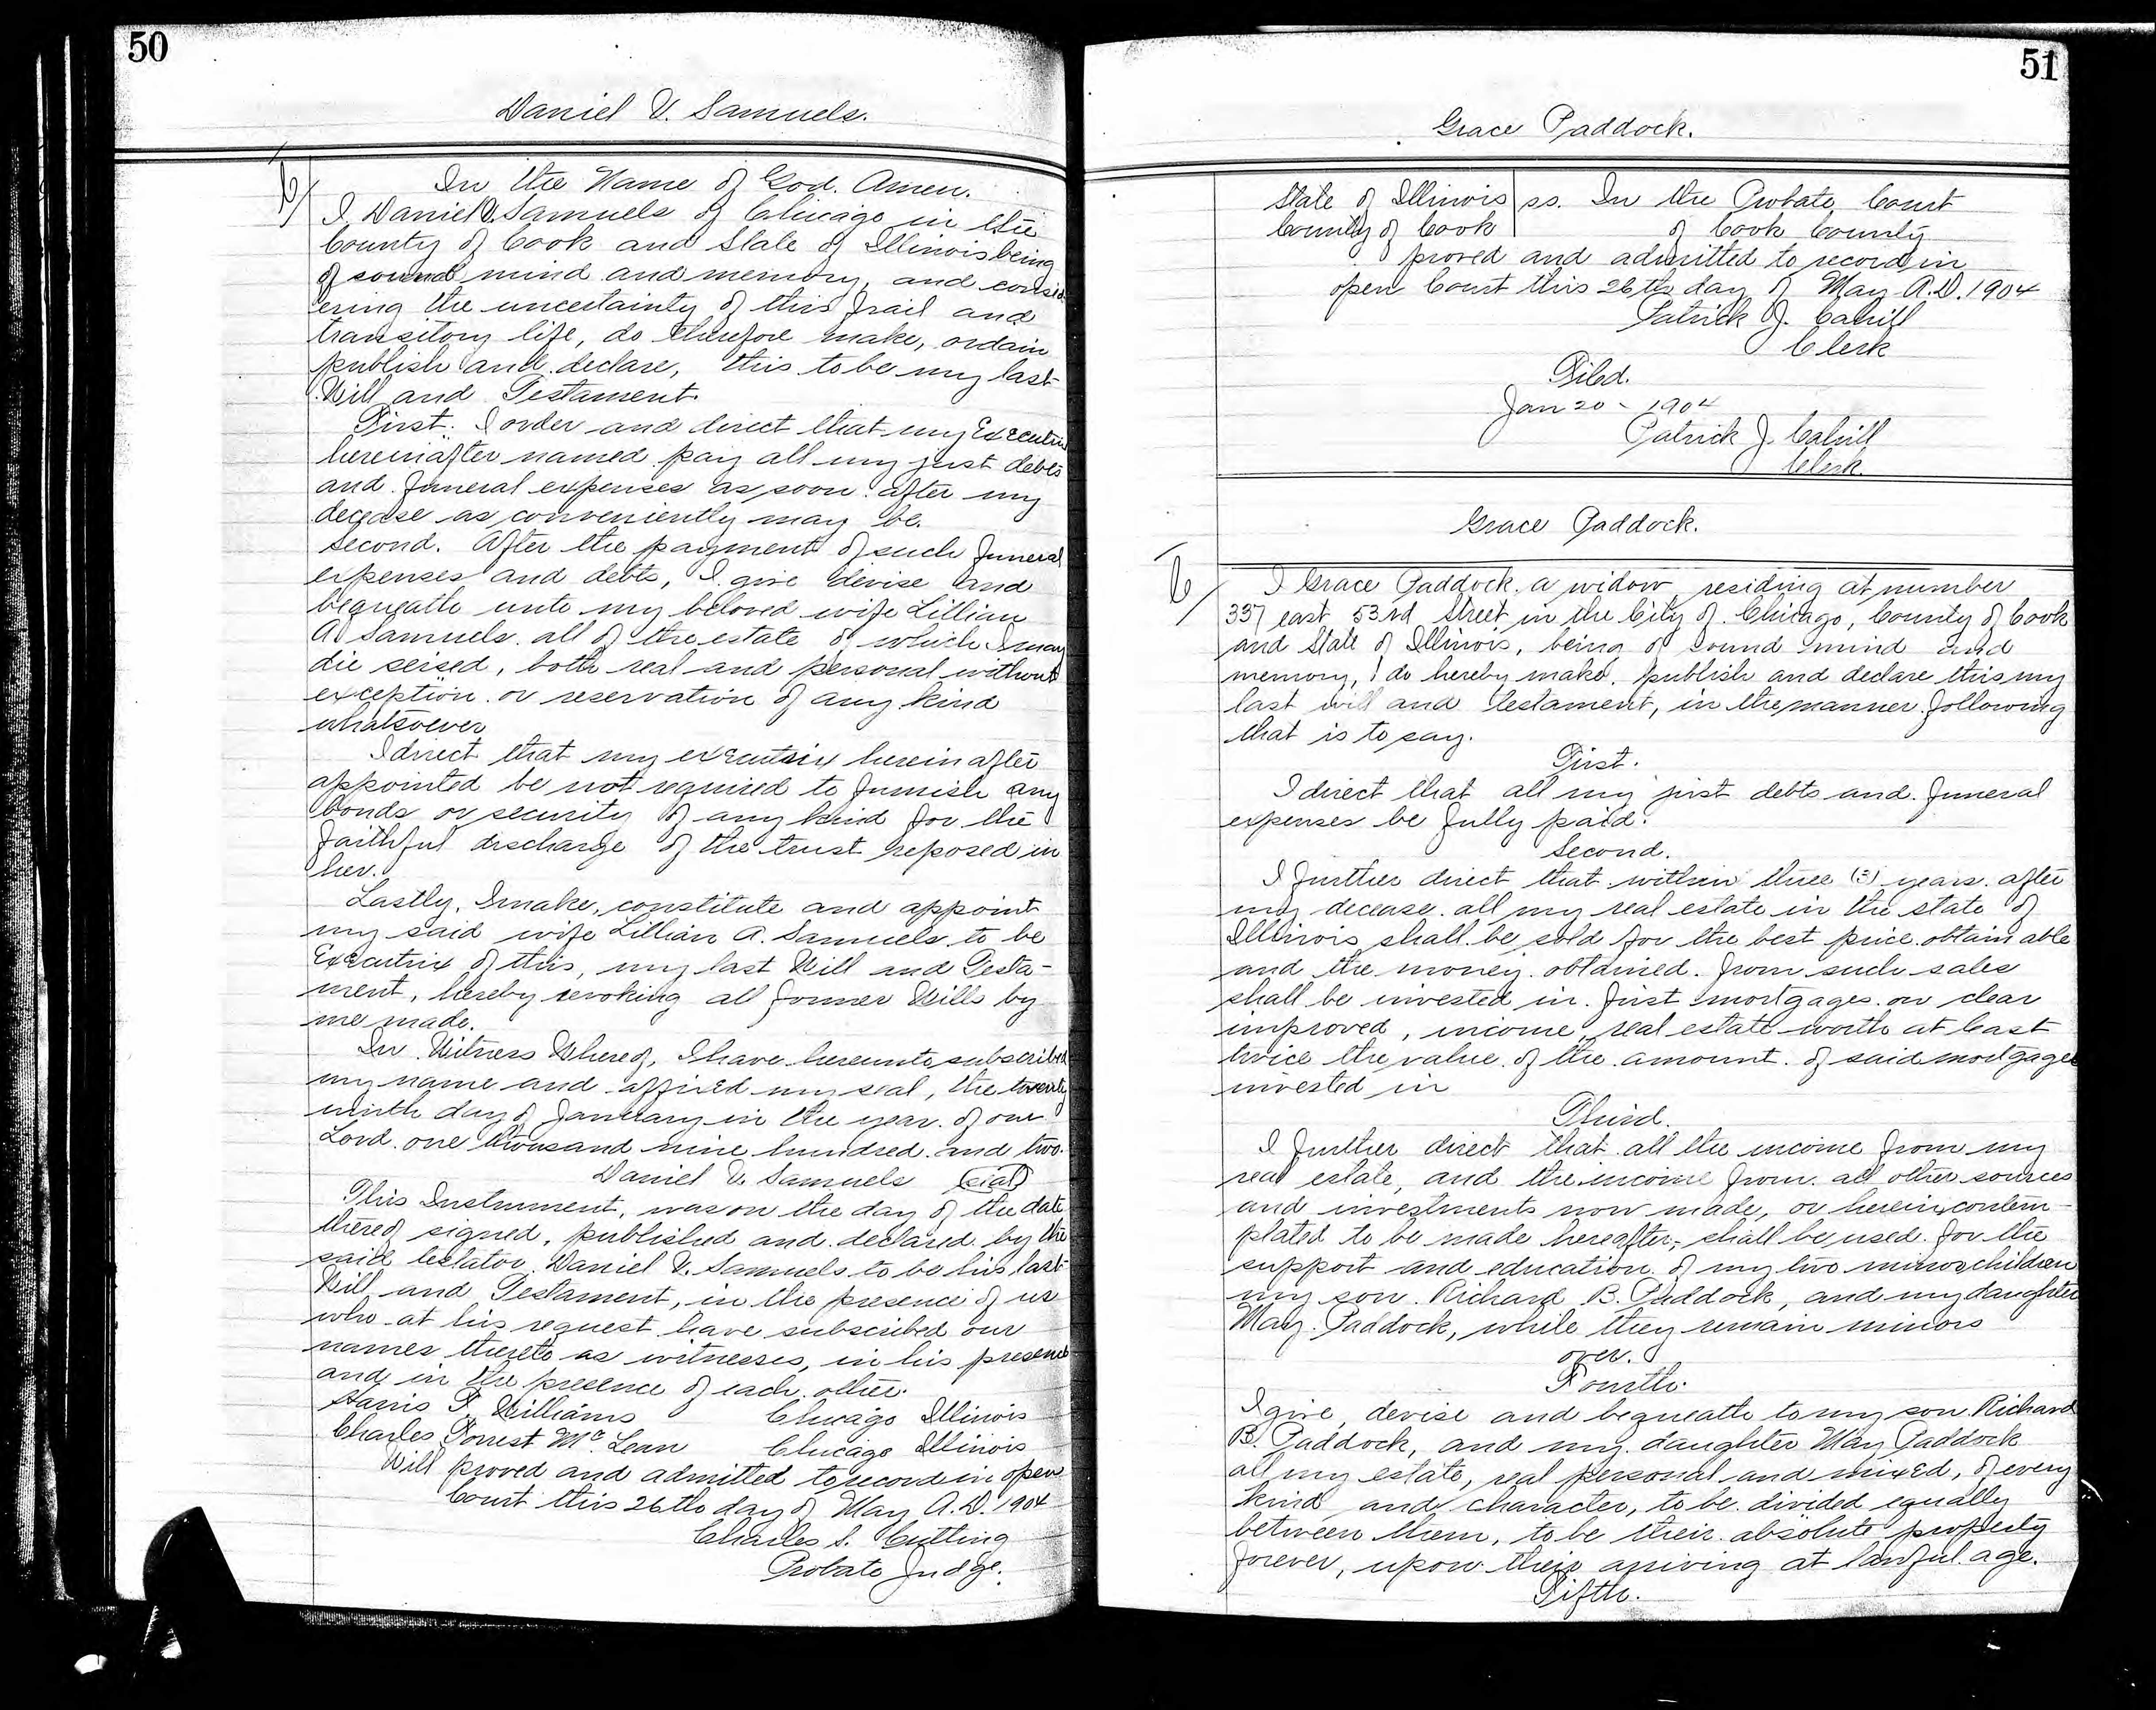 50
Daniel V. Samuels.
In the Name of God. Amen.
I, Daniel V. Samuels of Chicago in the
County of Cook and State of Illinois being
of sound mind and memory, and consid-
ering the uncertainty of this frail and
transitory life, do therefore make, ordain
publish and declare, this to be my last
Will and Testament.
First: I order and direct that my Executrix
hereinafter named pay all my just debts
and funeral expenses as soon after my
decease as conveniently may be.
Second. After the payment of such funeral
expenses and debts, I give devise and
bequeath unto my beloved wife Lillian
A Samuels. all of the estate of which I may
die seised, both real and personal without
exception or reservation of any kind
whatsoever
I direct that my executrix hereinafter
appointed be not required to furnish any
bonds or security of any kind for the
faithful discharge of the trust reposed in
her.
Lastly, I make, constitute and appoint
my said wife Lillian A. Samuels to be
Executrix of this, my last Will and Testa-
ment, hereby revoking all former Wills by
me made.
In Witness Whereof, I have hereunto subscribed
my name and affixed my seal, the twenty
ninth day of January in the year of our
Lord one thousand nine hundred and two.
Daniel V. Samuels (seal)
This Instrument, was on the day of the date
thereof signed, published and declared by the
said testator Daniel V. Samuels to be his last
Will and Testament, in the presence of us
who at his request have subscribed our
names thereto as witnesses, in his presence
and in the presence of each other.
Harris F. Williams Chicago Illinois
Charles Forrest McLean Chicago Illinois
Will proved and admitted to record in open
Court this 26th day of May A.D. 1904
Charles S. Cutting
Probate Judge.
51
Grace Paddock.
State of Illinois ss. In the Probate Court
County of Cook of Cook County
proved and admitted to record in
open Court this 26th day of May A.D. 1904
Patrick J. Cahill
Clerk
Filed.
Jan 20 - 1904
Patrick J. Cahill
Clerk.
Grace Paddock.
I Grace Paddock. a widow residing at number
337 east 53rd Street in the City of Chicago, County of Cook
and State of Illinois, being of sound mind and
memory, do hereby make, publish and declare this my
last will and testament, in the manner following
that is to say.
First.
I direct that all my just debts and funeral
expenses be fully paid.
Second.
I further direct that within three (3) years after
my decease all my real estate in the state of
Illinois shall be sold for the best price obtainable
and the money obtained from such sales
shall be invested in first mortgages on clear
improved, income real estate worth at least
twice the value of the amount of said mortgages
invested in
Third.
I further direct that all the income from my
real estate, and the income from all other sources
and investments now made, or herein contem-
plated to be made hereafter, shall be used for the
support and education of my two minor children
my son Richard B. Paddock, and my daughter
May Paddock, while they remain minors
over.
Fourth.
I give, devise and bequeath to my son Richard
B. Paddock, and my daughter May Paddock
all my estate, real personal and mixed, of every
kind and character, to be divided equally
between them, to be their absolute property
forever, upon their arriving at lawful age.
Fifth.